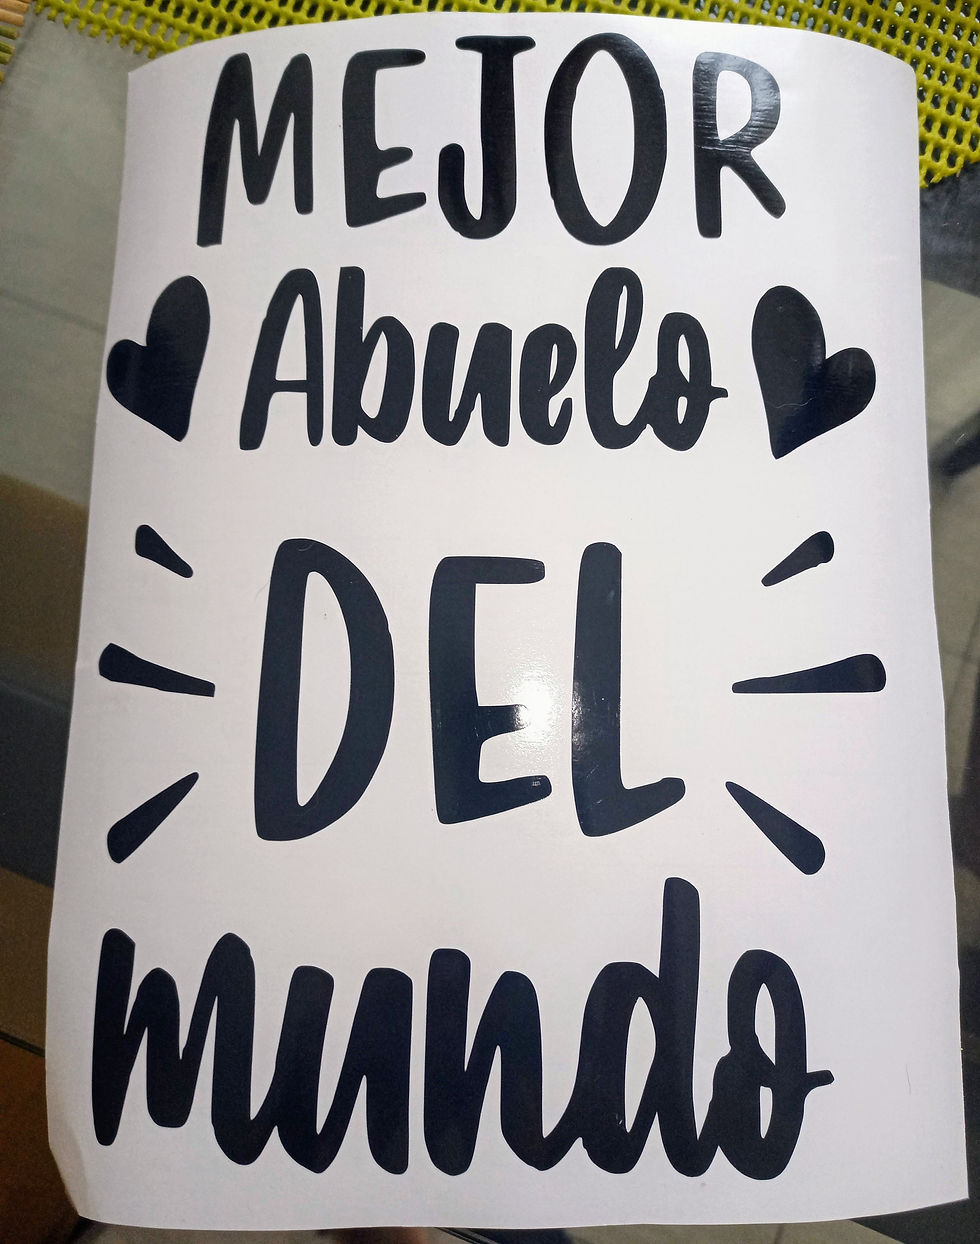 MEJOR
Abuelo
DEL
mundo